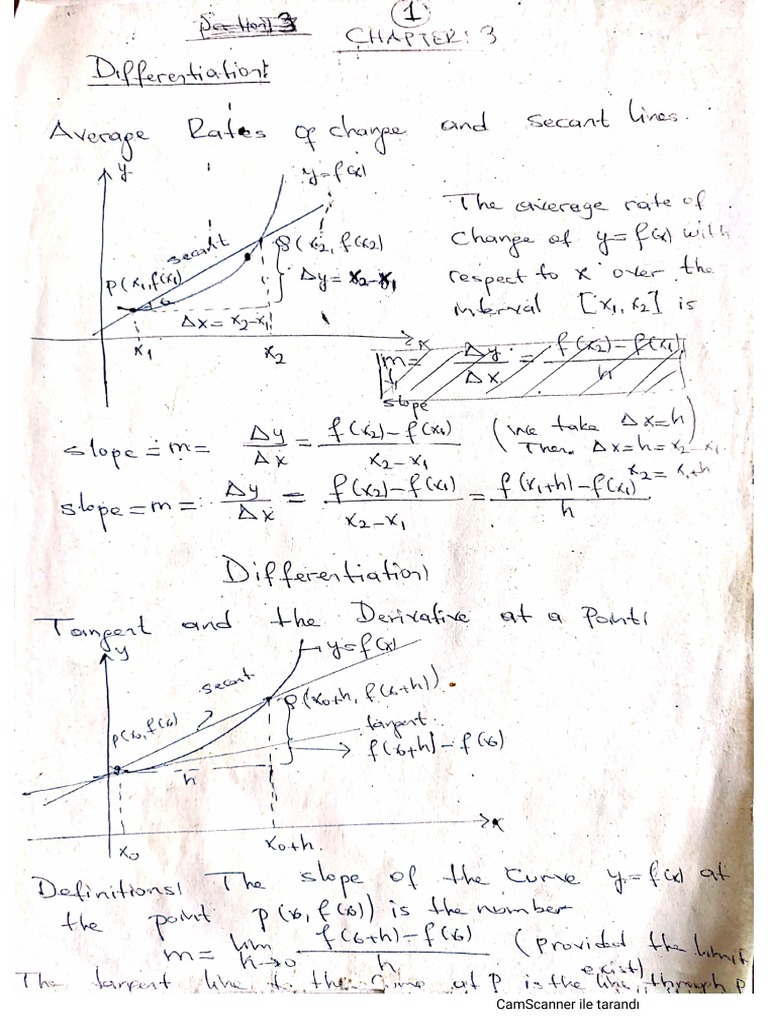 1
CHAPTER: 3
Differentiation:
Average Rates of change and secant lines.
y
y=f(x)
The average rate of
change of y=f(x) with
respect to x over the
interval [x1, x2] is
secant
Q(x2, f(x2))
P(x1, f(x1))
Δy = x2-x1
Δx = x2-x1
x
x1
x2
m = Δy/Δx = f(x2)-f(x1)/h
slope
slope = m = Δy/Δx = f(x2)-f(x1)/x2-x1 (We take Δx=h)
Then Δx=h=x2-x1
x2 = x1+h
slope = m = Δy/Δx = f(x2)-f(x1)/x2-x1 = f(x1+h)-f(x1)/h
Differentiation
Tangent and the Derivative at a Point
y
y=f(x)
secant
P(x0, f(x0))
Q(x0+h, f(x0+h))
tangent
f(x0+h)-f(x0)
h
x
x0
x0+h.
Definitions/ The slope of the curve y=f(x) at
the point p(x0, f(x0)) is the number
m = lim h→0 f(x0+h)-f(x0)/h (provided the limit
exist)
The tangent line to the curve at P is the line through P
CamScanner ile tarandı